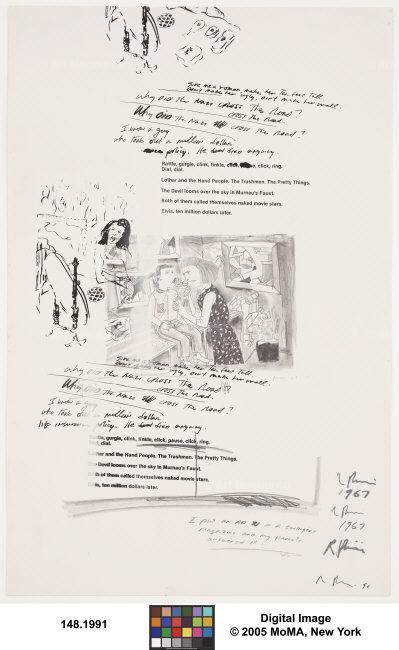 Give me a woman, make her ten feet tall
Don't make her ugly, don't make her small.
Why did the Nazi cross the Road?
cross the Road.
Why DID the Nazi cross the Road?
I knew a guy
who took out a million dollar
policy. He died anyway.
Rattle, gurgle, clink, tinkle, click, pause, click, ring.
Dial, dial.
Lothar and the Hand People. The Trashmen. The Pretty Things.
The Devil looms over the sky in Murnau's Faust.
Both of them called themselves naked movie stars.
Elvis, ten million dollars later.
Give me a woman, make her ten feet tall
Don't make her ugly, don't make her small.
Why did the Nazi cross the Road
cross the Road.
Why DID the Nazi cross the Road?
I knew a guy
who took out a million dollar
life insurance policy. He died anyway.
Rattle, gurgle, clink, tinkle, click, pause, click, ring.
Dial, dial.
Lothar and the Hand People. The Trashmen. The Pretty Things.
The Devil looms over the sky in Murnau's Faust.
Both of them called themselves naked movie stars.
Elvis, ten million dollars later.
1967
1967
I put an AD in a swingers
magazine and my parents
answered it
R Prince
90
148.1991
Digital Image
© 2005 MoMA, New York